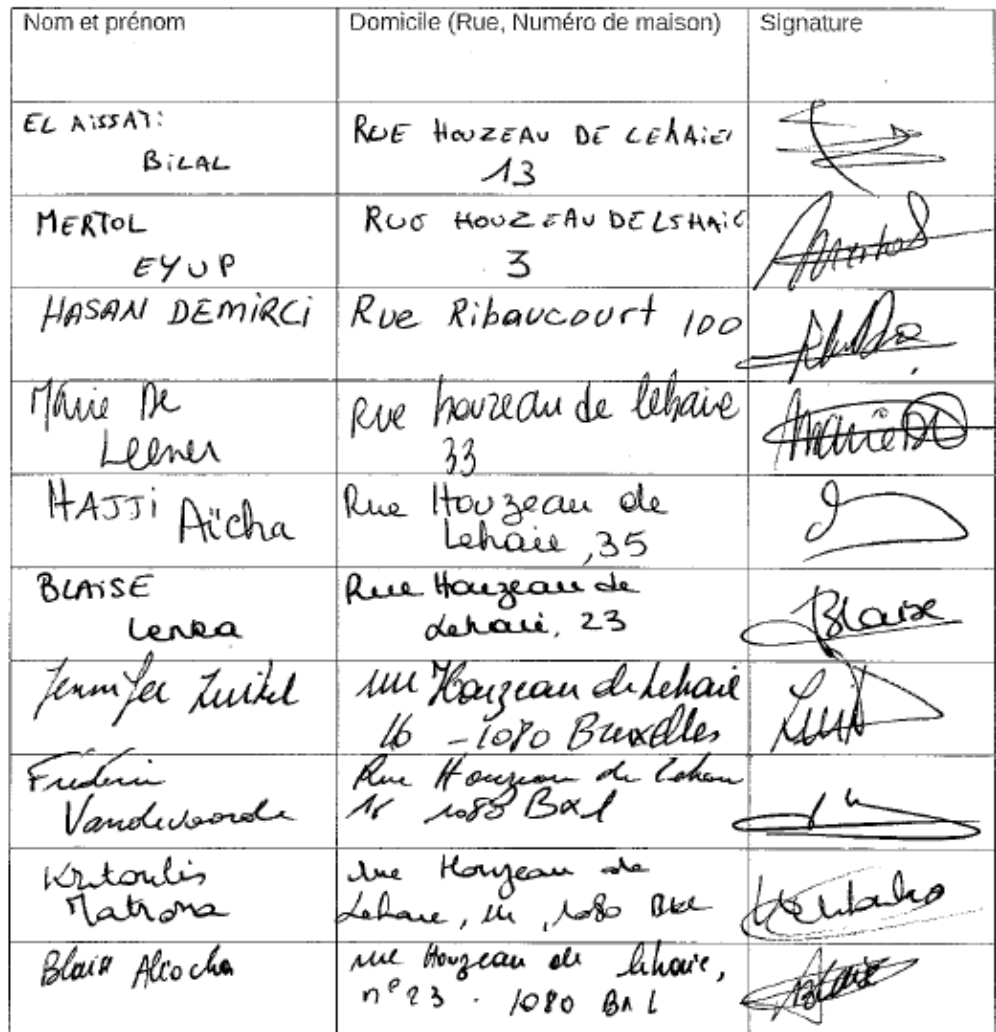 Nom et prénom
Domicile (Rue, Numéro de maison)
Signature
EL AISSATI
BILAL
RUE HOUZEAU DE LEHAIE
13
MERTOL
EYUP
RUE HOUZEAU DE LEHAIE
3
Mertol
HASAN DEMIRCI
Rue Ribaucourt 100
Marie De
Leener
Rue houzeau de lehaie
33
Marie
HAJJI Aïcha
Rue Houzeau de
Lehaie, 35
BLAISE
Rue Houzeau de
Lehaie, 23
Blaise
Jennifer
rue Houzeau de Lehaie
16 - 1080 Bruxelles
Vandevoorde
Rue Houzeau de
16 1080 Bxl
Kritoulis
Matrona
rue Houzeau de
Lehaie, 1080 Bxl
Blaise Aliocha
rue Houzeau de lehaie,
n° 23 - 1080 BXL
Blaise